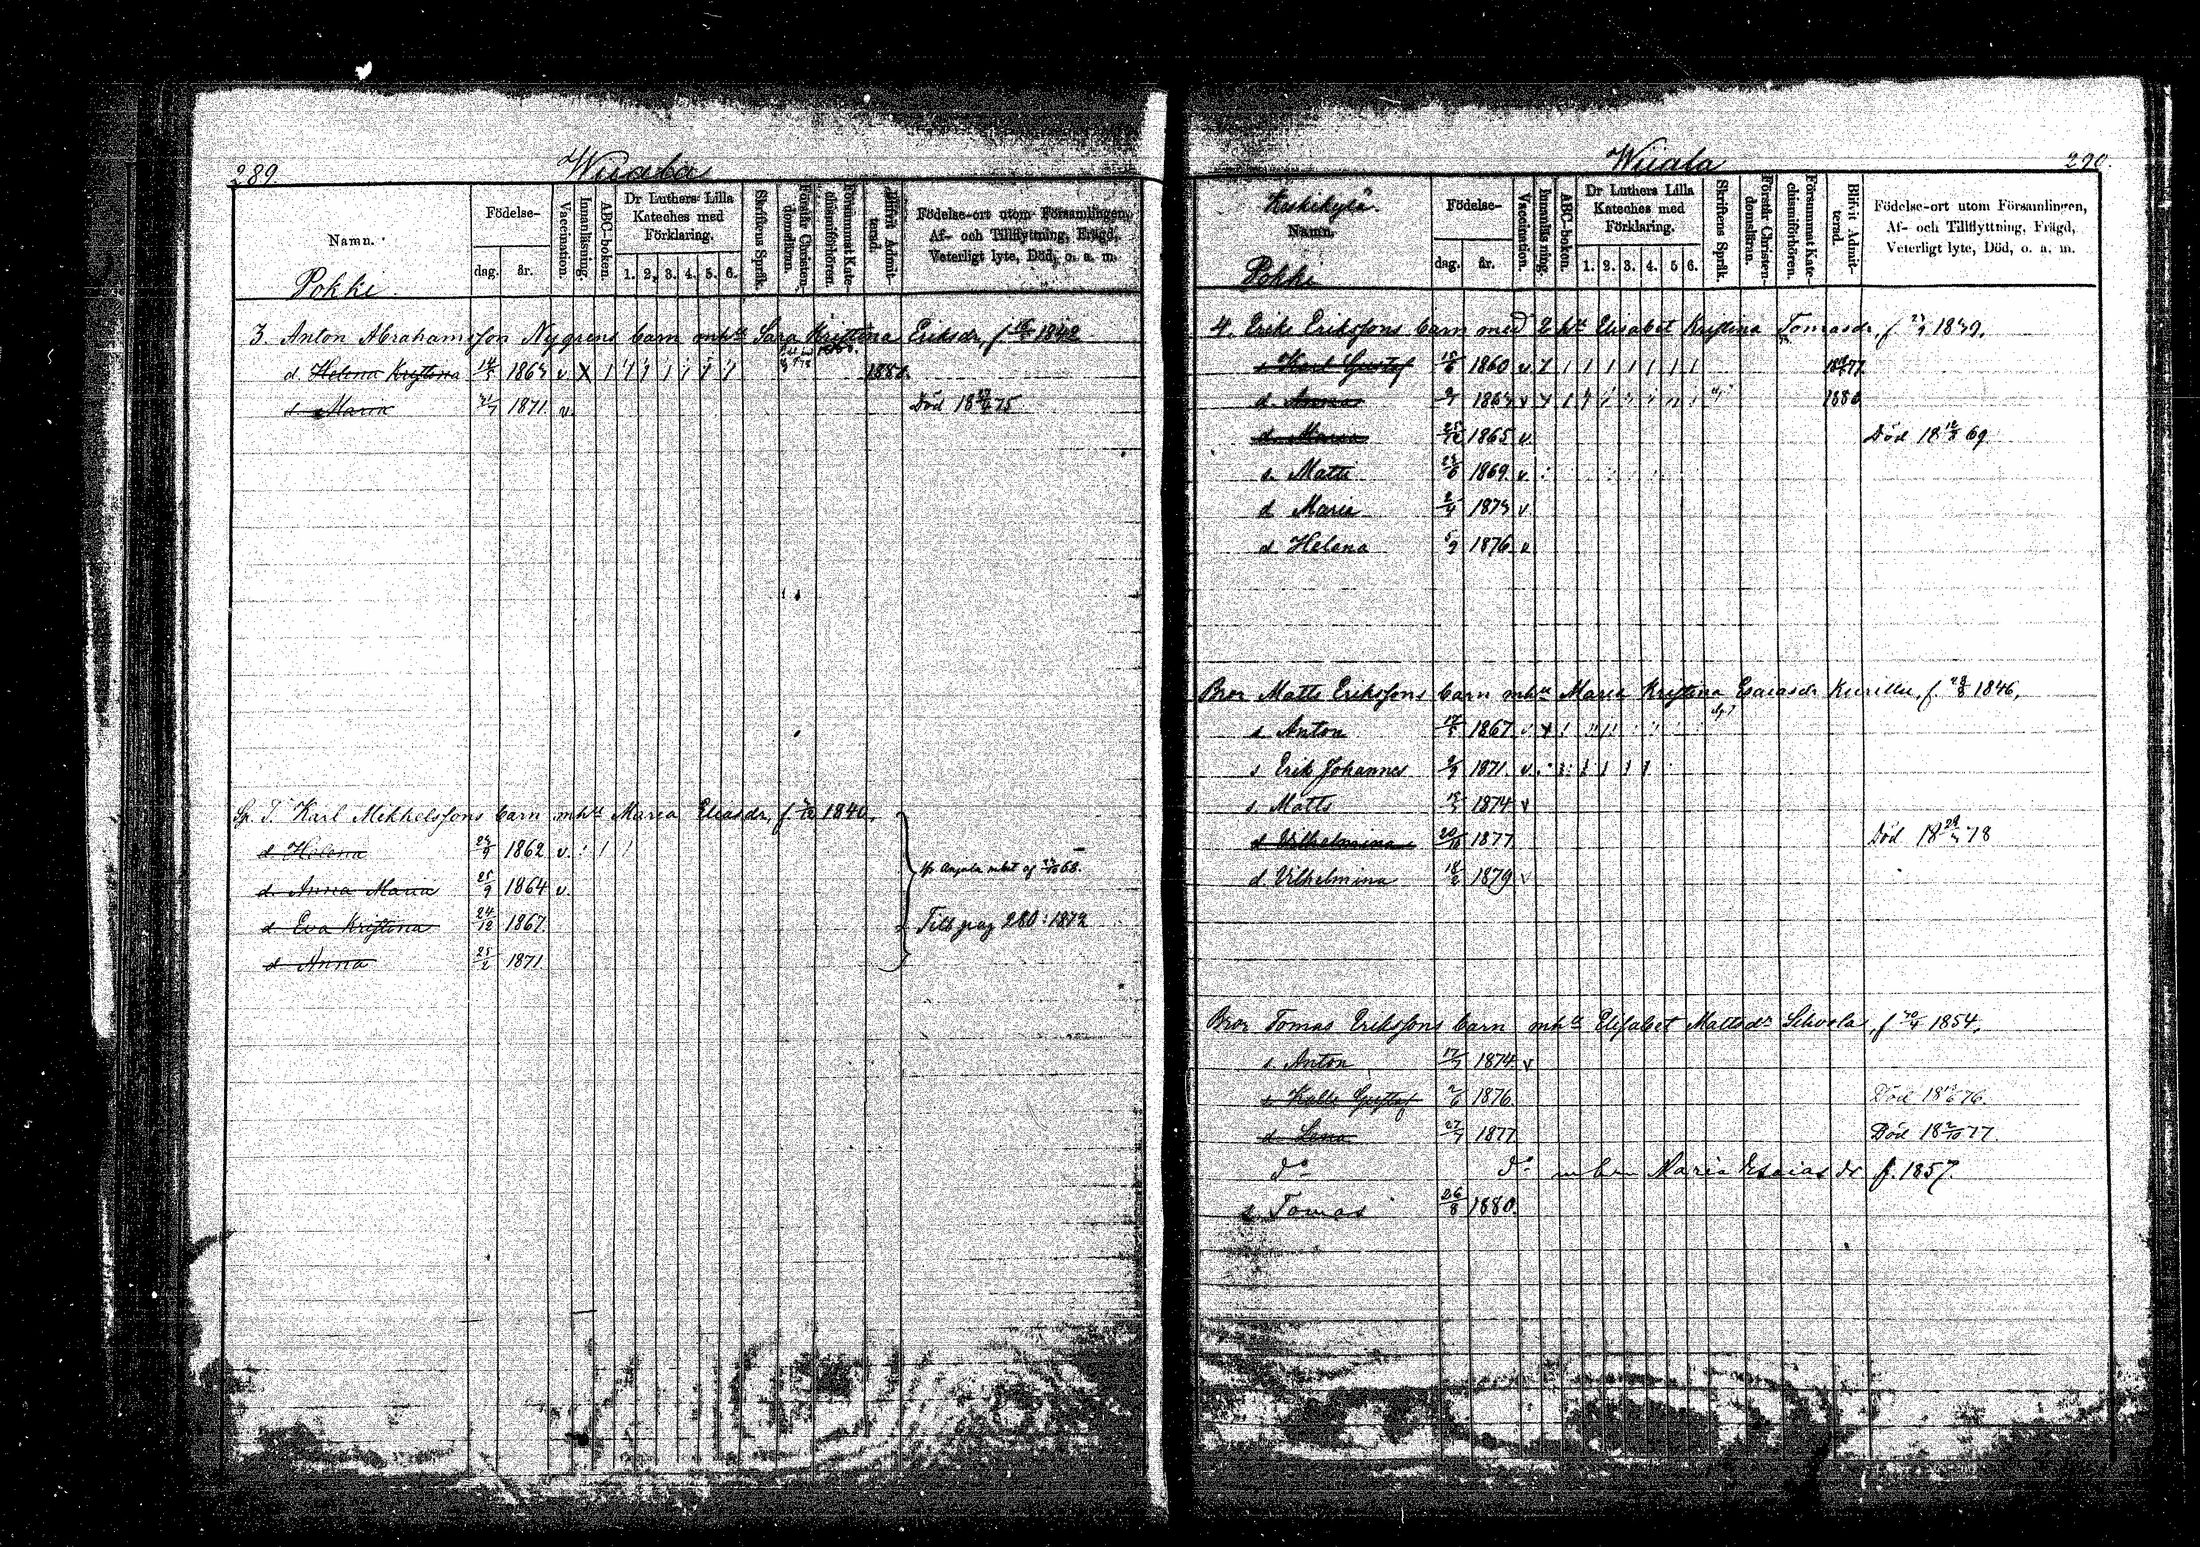 289.
Wiiala
Namn.
Födelse-
dag.
år.
Vaccination.
Innanläsning.
ABC-boken.
Dr Luthers Lilla
Kateches med
Förklaring.
1. 2. 3. 4. 5. 6.
Skriftens Språk.
Förstår Christen-
domsläran.
Försummat Kate-
chismiförhören.
Blifvit Admit-
terad.
Födelse-ort utom Församlingen,
Af- och Tillflyttning, Frägd,
Veterligt lyte, Död, o. a. m.
Pokki
3. Anton Abrahamsson Nygrens barn mhu Sara Kristina Eriksdr, f. 1842
d. Helena Kristina 1863 v X 1881.
Maria 1871 v. Död 18 75
Sp. T. Karl Mikkelssons barn mhu Maria Eliasdr, f. 1840.
d. Helena 24/9 1862 v.
d. Anna Maria 25/9 1864 v.
d. Eva Kristina 24/12 1867.
d. Anna 25/2 1871
Till pag 280: 1872
Wiiala
290.
Koskikylä.
Namn.
Födelse-
dag.
år.
Vaccination.
Innanläsning.
ABC-boken.
Dr Luthers Lilla
Kateches med
Förklaring.
1. 2. 3. 4. 5 6.
Skriftens Språk.
Förstår Christen-
domsläran.
Försummat Kate-
chismiförhören.
Blifvit Admit-
terad.
Födelse-ort utom Församlingen,
Af- och Tillflyttning, Frägd,
Veterligt lyte, Död, o. a. m.
Pokki
4. Eriks Erikssons barn med 2 hu Elisabet Kristina Tomasdr, f. 1839.
s. Karl Gustaf 1860 v 1877
d. Anna 1863 v 1880
d. Maria 1865 v. Död 18 69
s. Matts 1869. v.
d Maria 2/4 1873 v
d Helena 1876 v
Bror Matts Erikssons barn mhu Maria Kristina Esaiasdr Kurillu, f. 1846.
s. Anton 1867 v
s Erik Johannes 1871 v
s. Matts 1874 v
d Vilhelmina 20/10 1877 Död 18 78
d. Vilhelmina 18/2 1879 v
Bror Tomas Erikssons barn mhu Elisabet Mattsdr f 1854.
s. Anton 1874 v
s. Kalle Gustaf 1876. Död 18 76.
d. Lena 27/7 1877 Död 18 77.
do do Maria Esaiasdr f. 1857.
s. Tomas 26/8 1880.